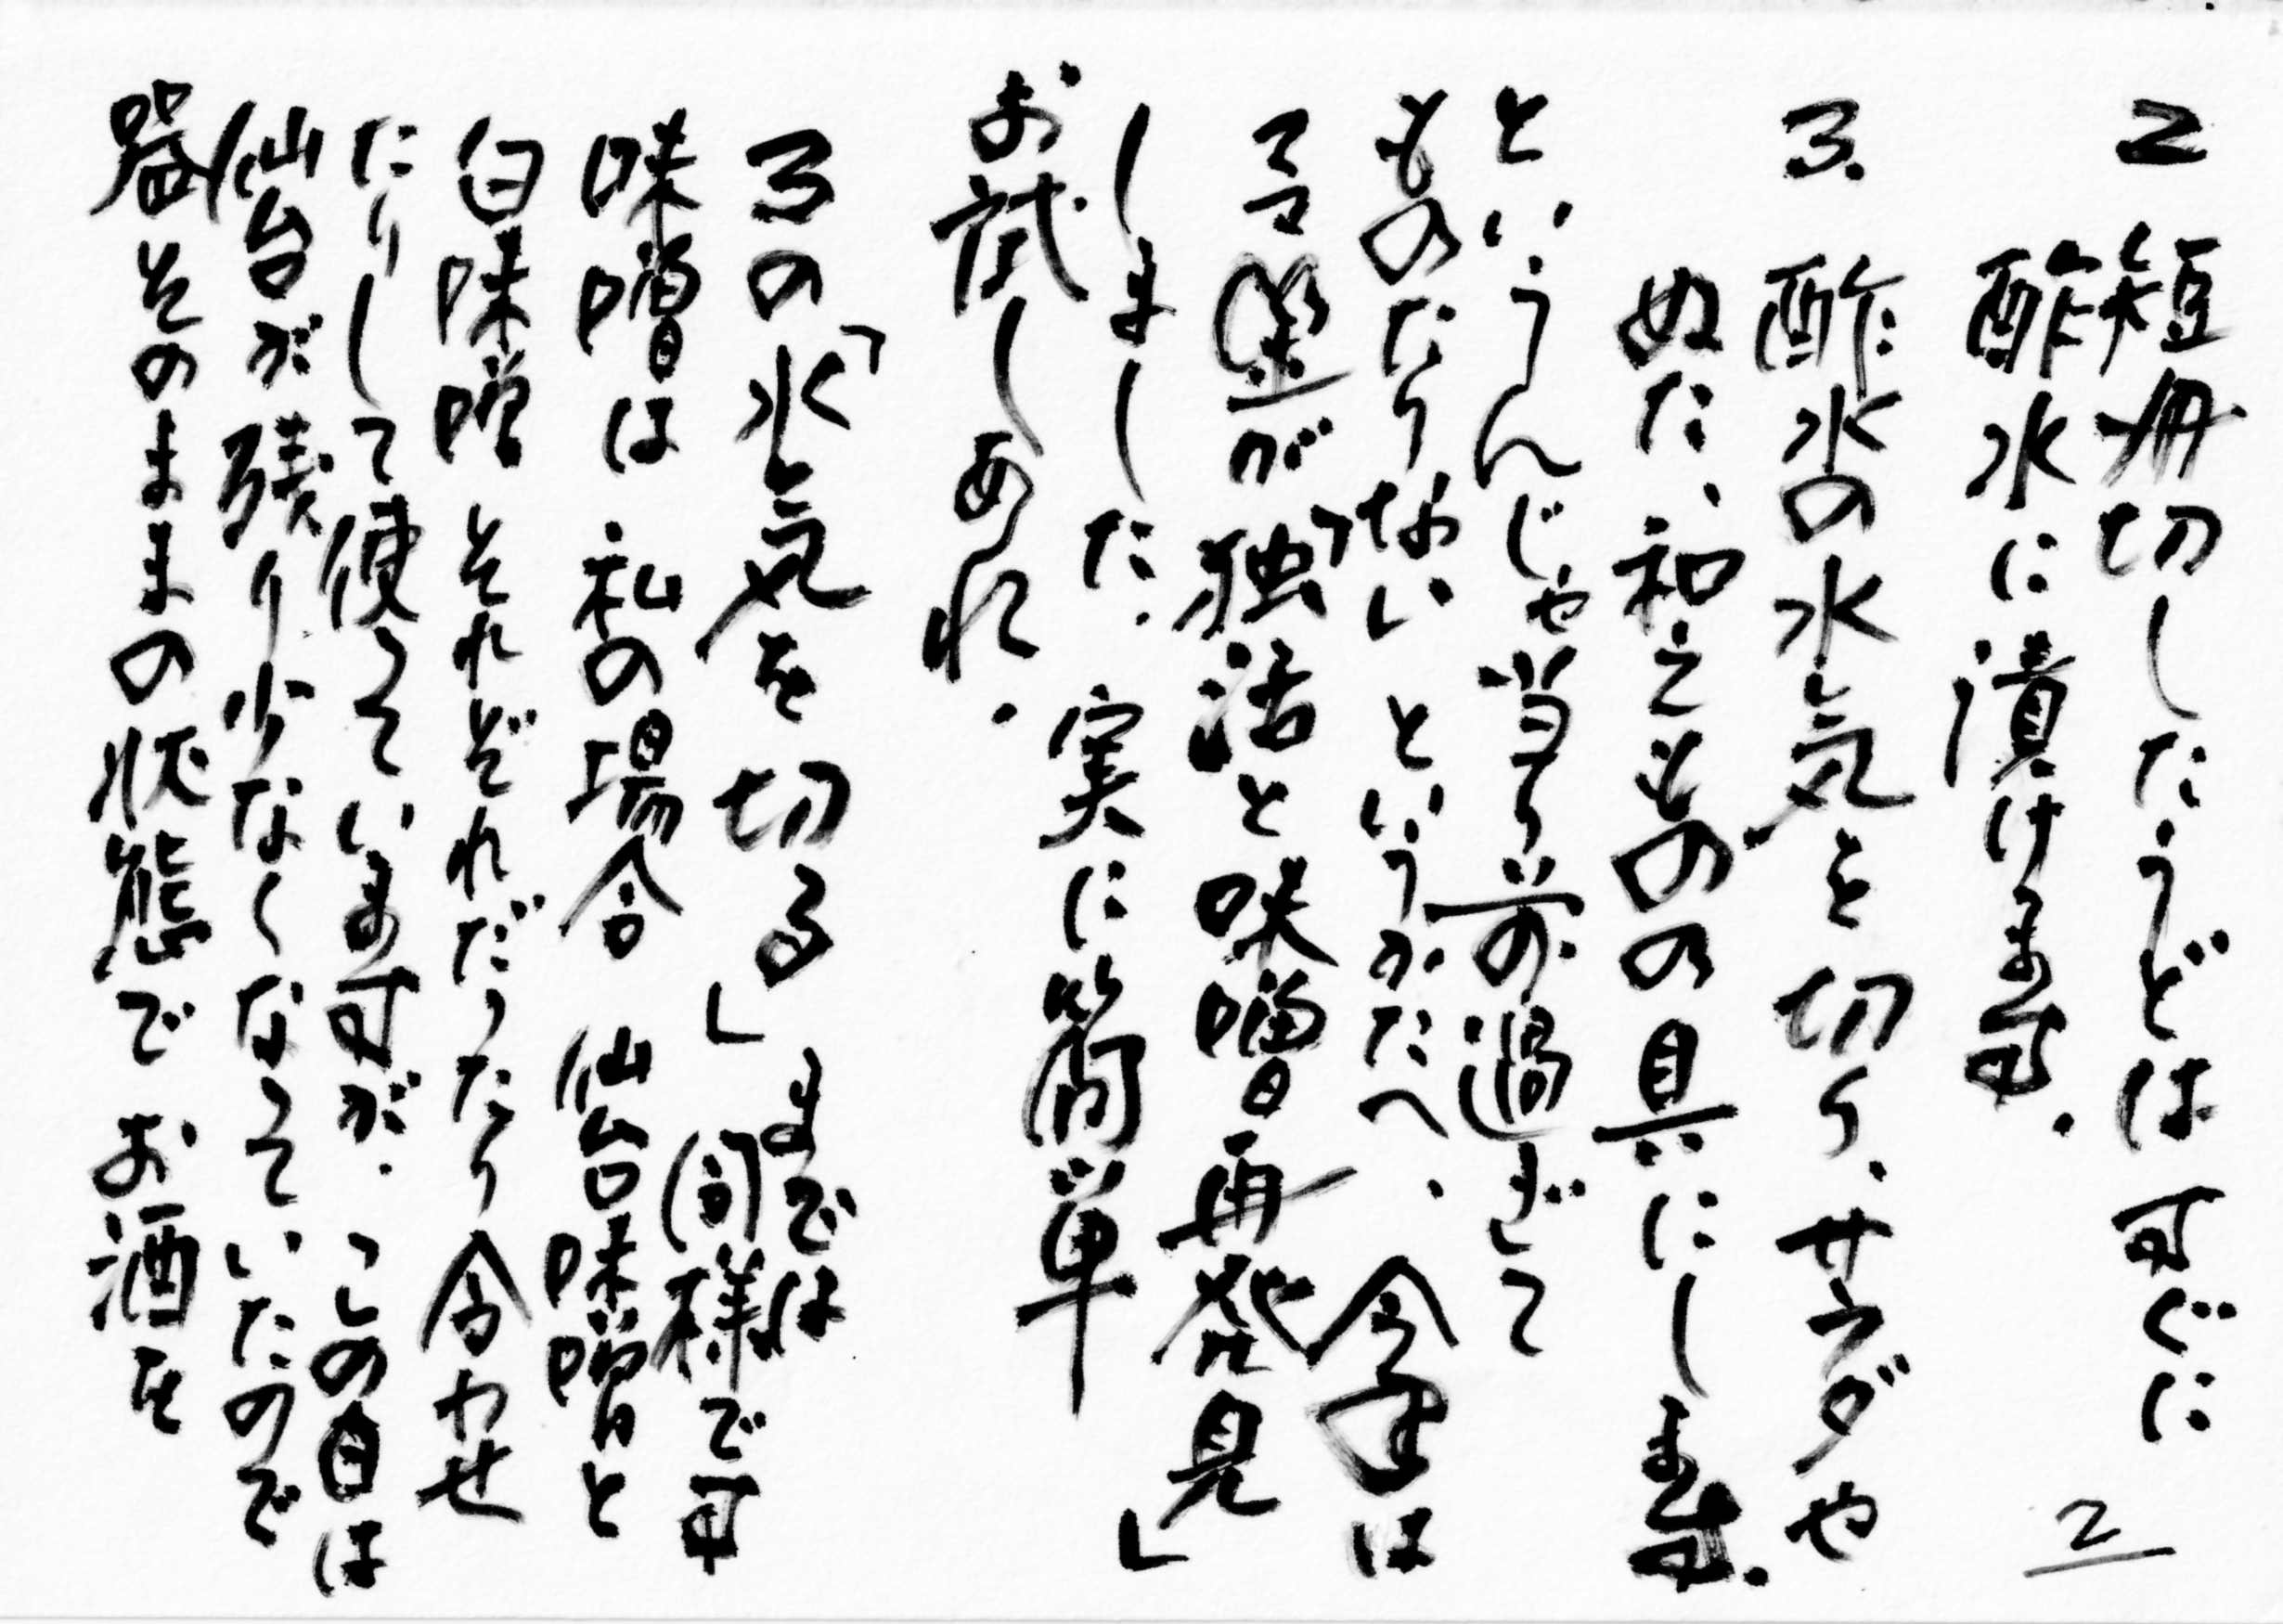 2 短冊切したうどはすぐに
酢水に漬けます.
3. 酢水の水気を切り、サラダや
ぬた、和えものの具にします.
というんじゃ当り前過ぎて
ものたりないというかたへ、今年は
が「独活と味噌再発見」
しました. 実に簡単
お試しあれ.
3の「水気を切る」までは
同様です
味噌は 私の場合 仙台味噌と
白味噌 それぞれだったり合わせ
たりして使っていますが. この日は
仙台が残り少なくなっていたので
そのままの状態でお酒を
2